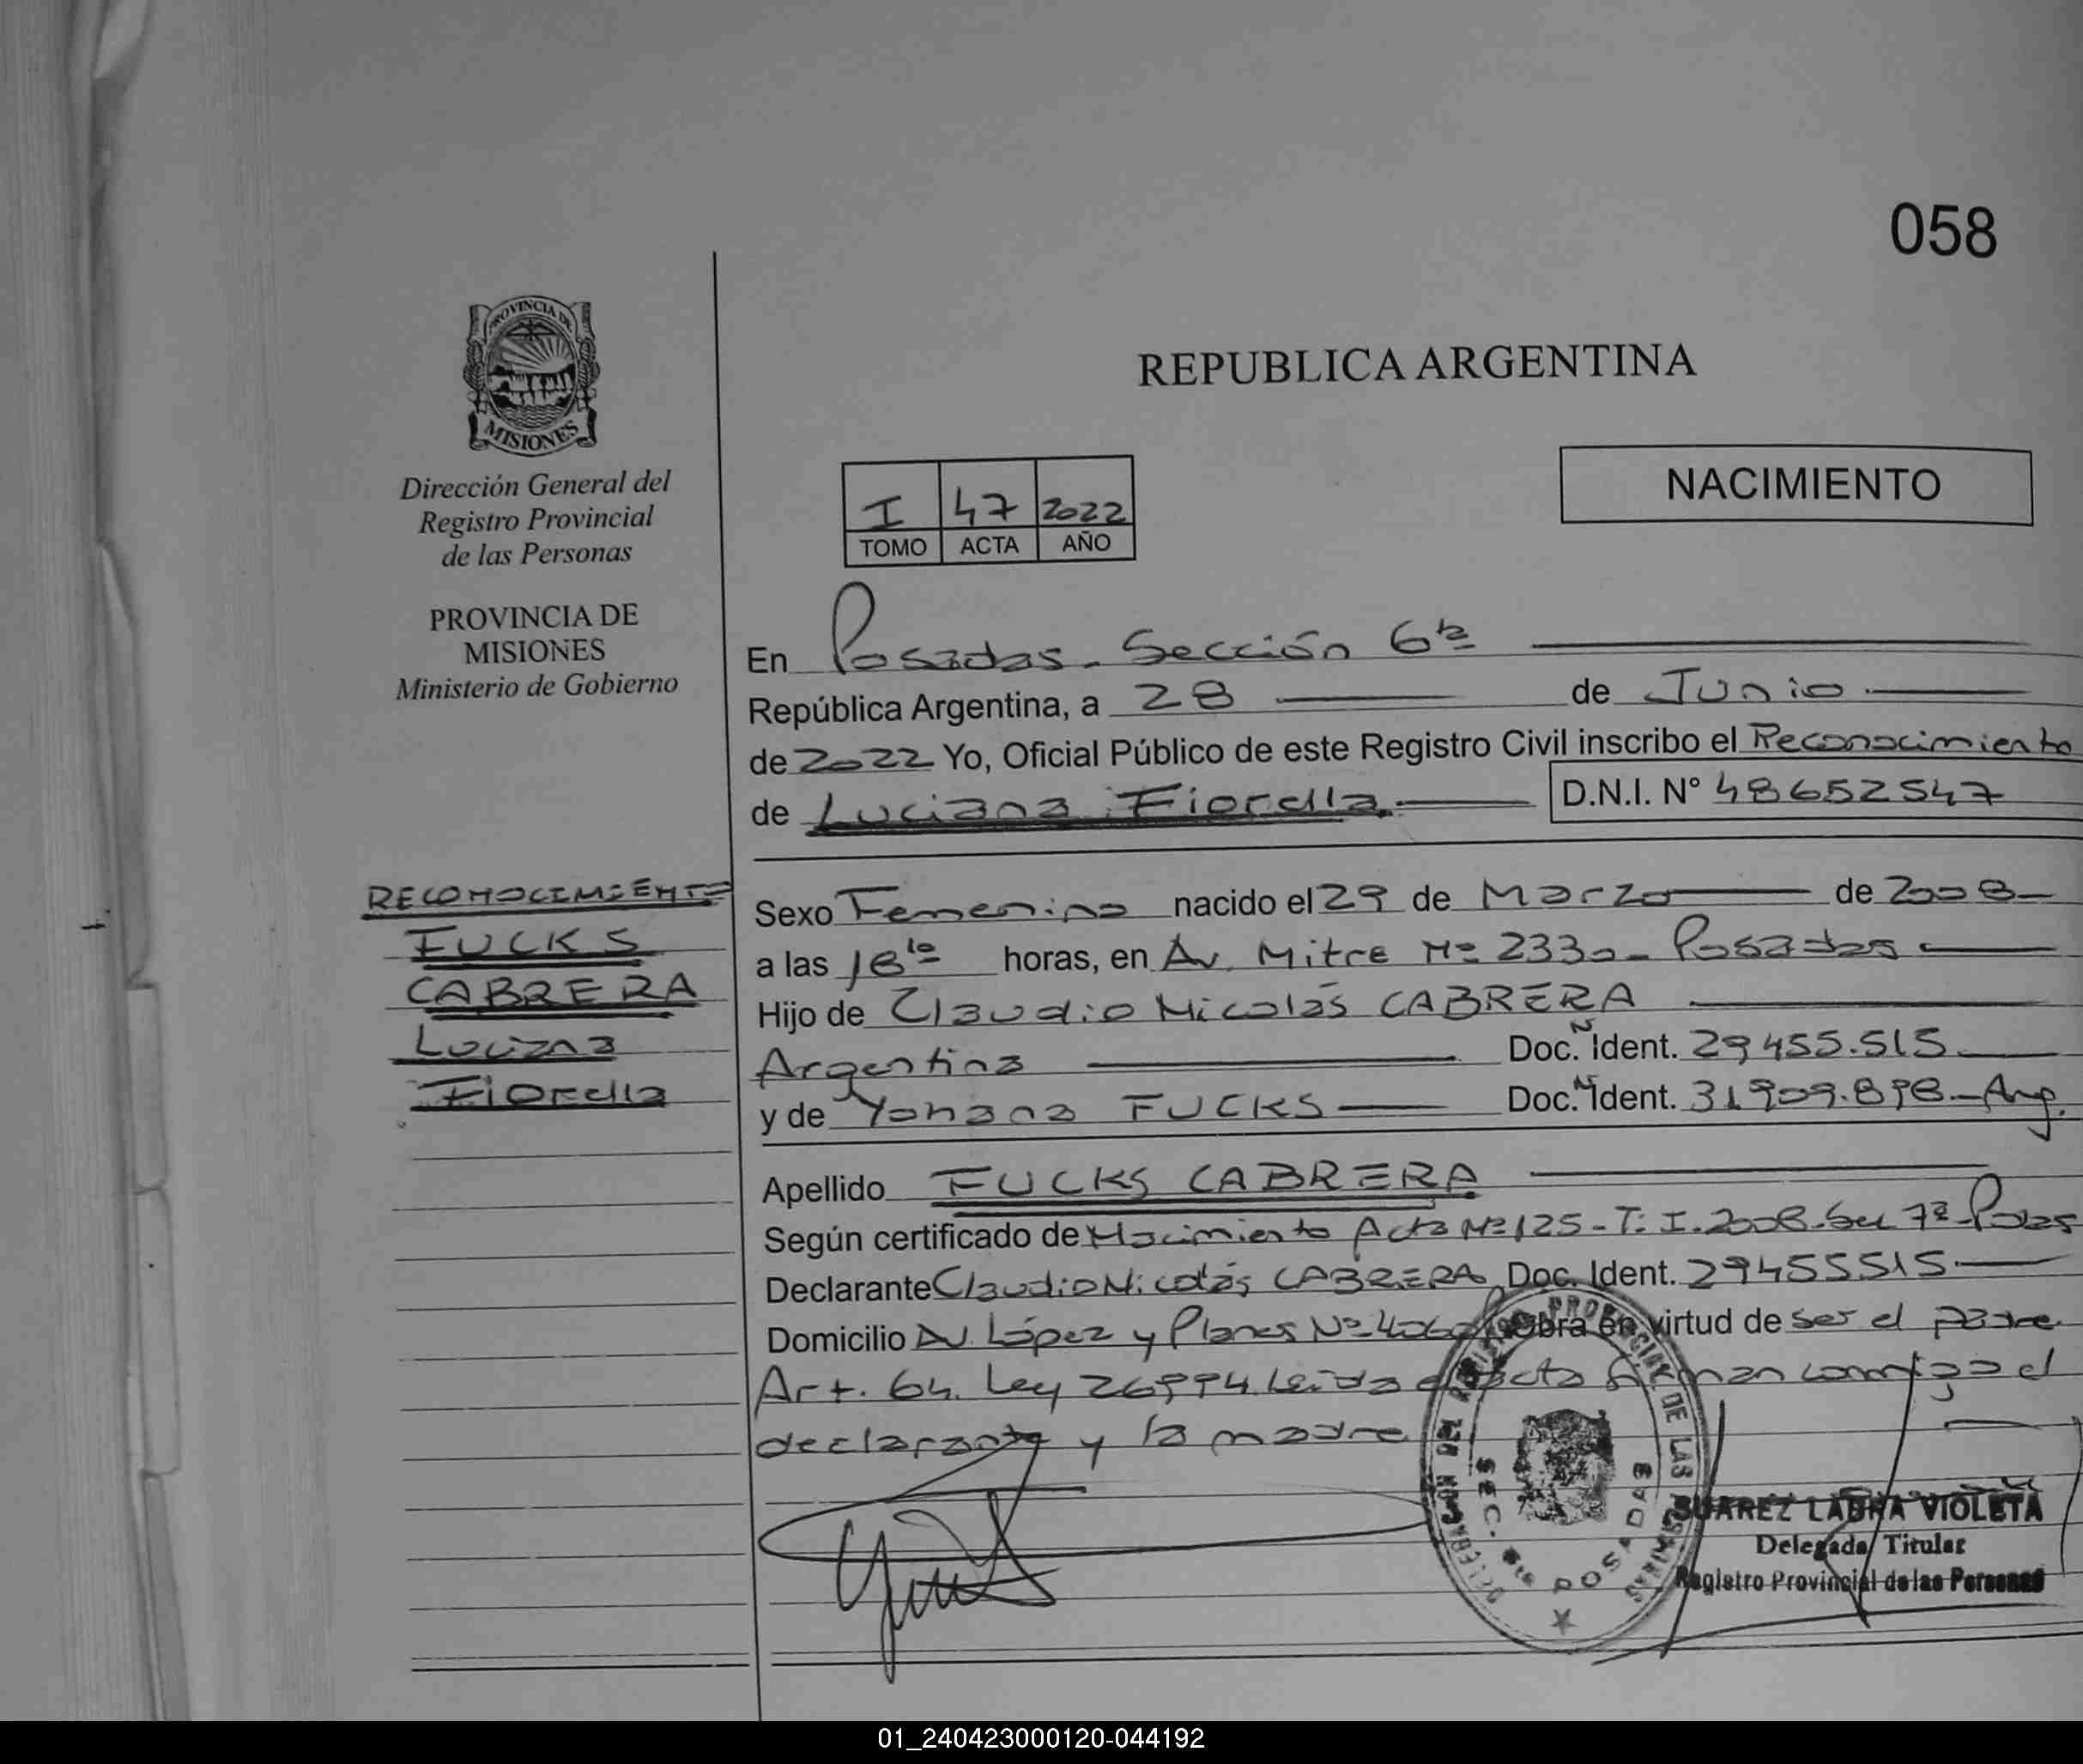 058
PROVINCIA DE
MISIONES
Dirección General del
Registro Provincial
de las Personas
PROVINCIA DE
MISIONES
Ministerio de Gobierno
REPUBLICA ARGENTINA
NACIMIENTO
I 47 2022
TOMO ACTA AÑO
En Posadas - Sección 6ta
República Argentina, a 28 de Junio
de 2022 Yo, Oficial Público de este Registro Civil inscribo el Reconocimiento
de Luciana Fiorella D.N.I. N° 48652547
RECONOCIMIENTO
FUCKS
CABRERA
Luciana
Fiorella
Sexo Femenino nacido el 29 de Marzo de 2008
a las 18 horas, en Av. Mitre Nº 2330 - Posadas
Hijo de Claudio Nicolás CABRERA
Argentina Doc. Ident. 29455.515
y de Yohana FUCKS Doc. Ident. 31909.898 - Arg.
Apellido FUCKS CABRERA
Según certificado de Nacimiento Acta Nº 125 - T: I. 2008. Sec 7ª - Pdas
Declarante Claudio Nicolás CABRERA Doc. Ident. 29455515
Domicilio Av. López y Planes Nº 4060 Obra en virtud de ser el padre
Art. 64. Ley 26994 Leída el acta firman conmigo el
declarante y la madre
SEC. 6ta POSADAS
SUAREZ LABRA VIOLETA
Delegada Titular
Registro Provincial de las Personas
01_240423000120-044192